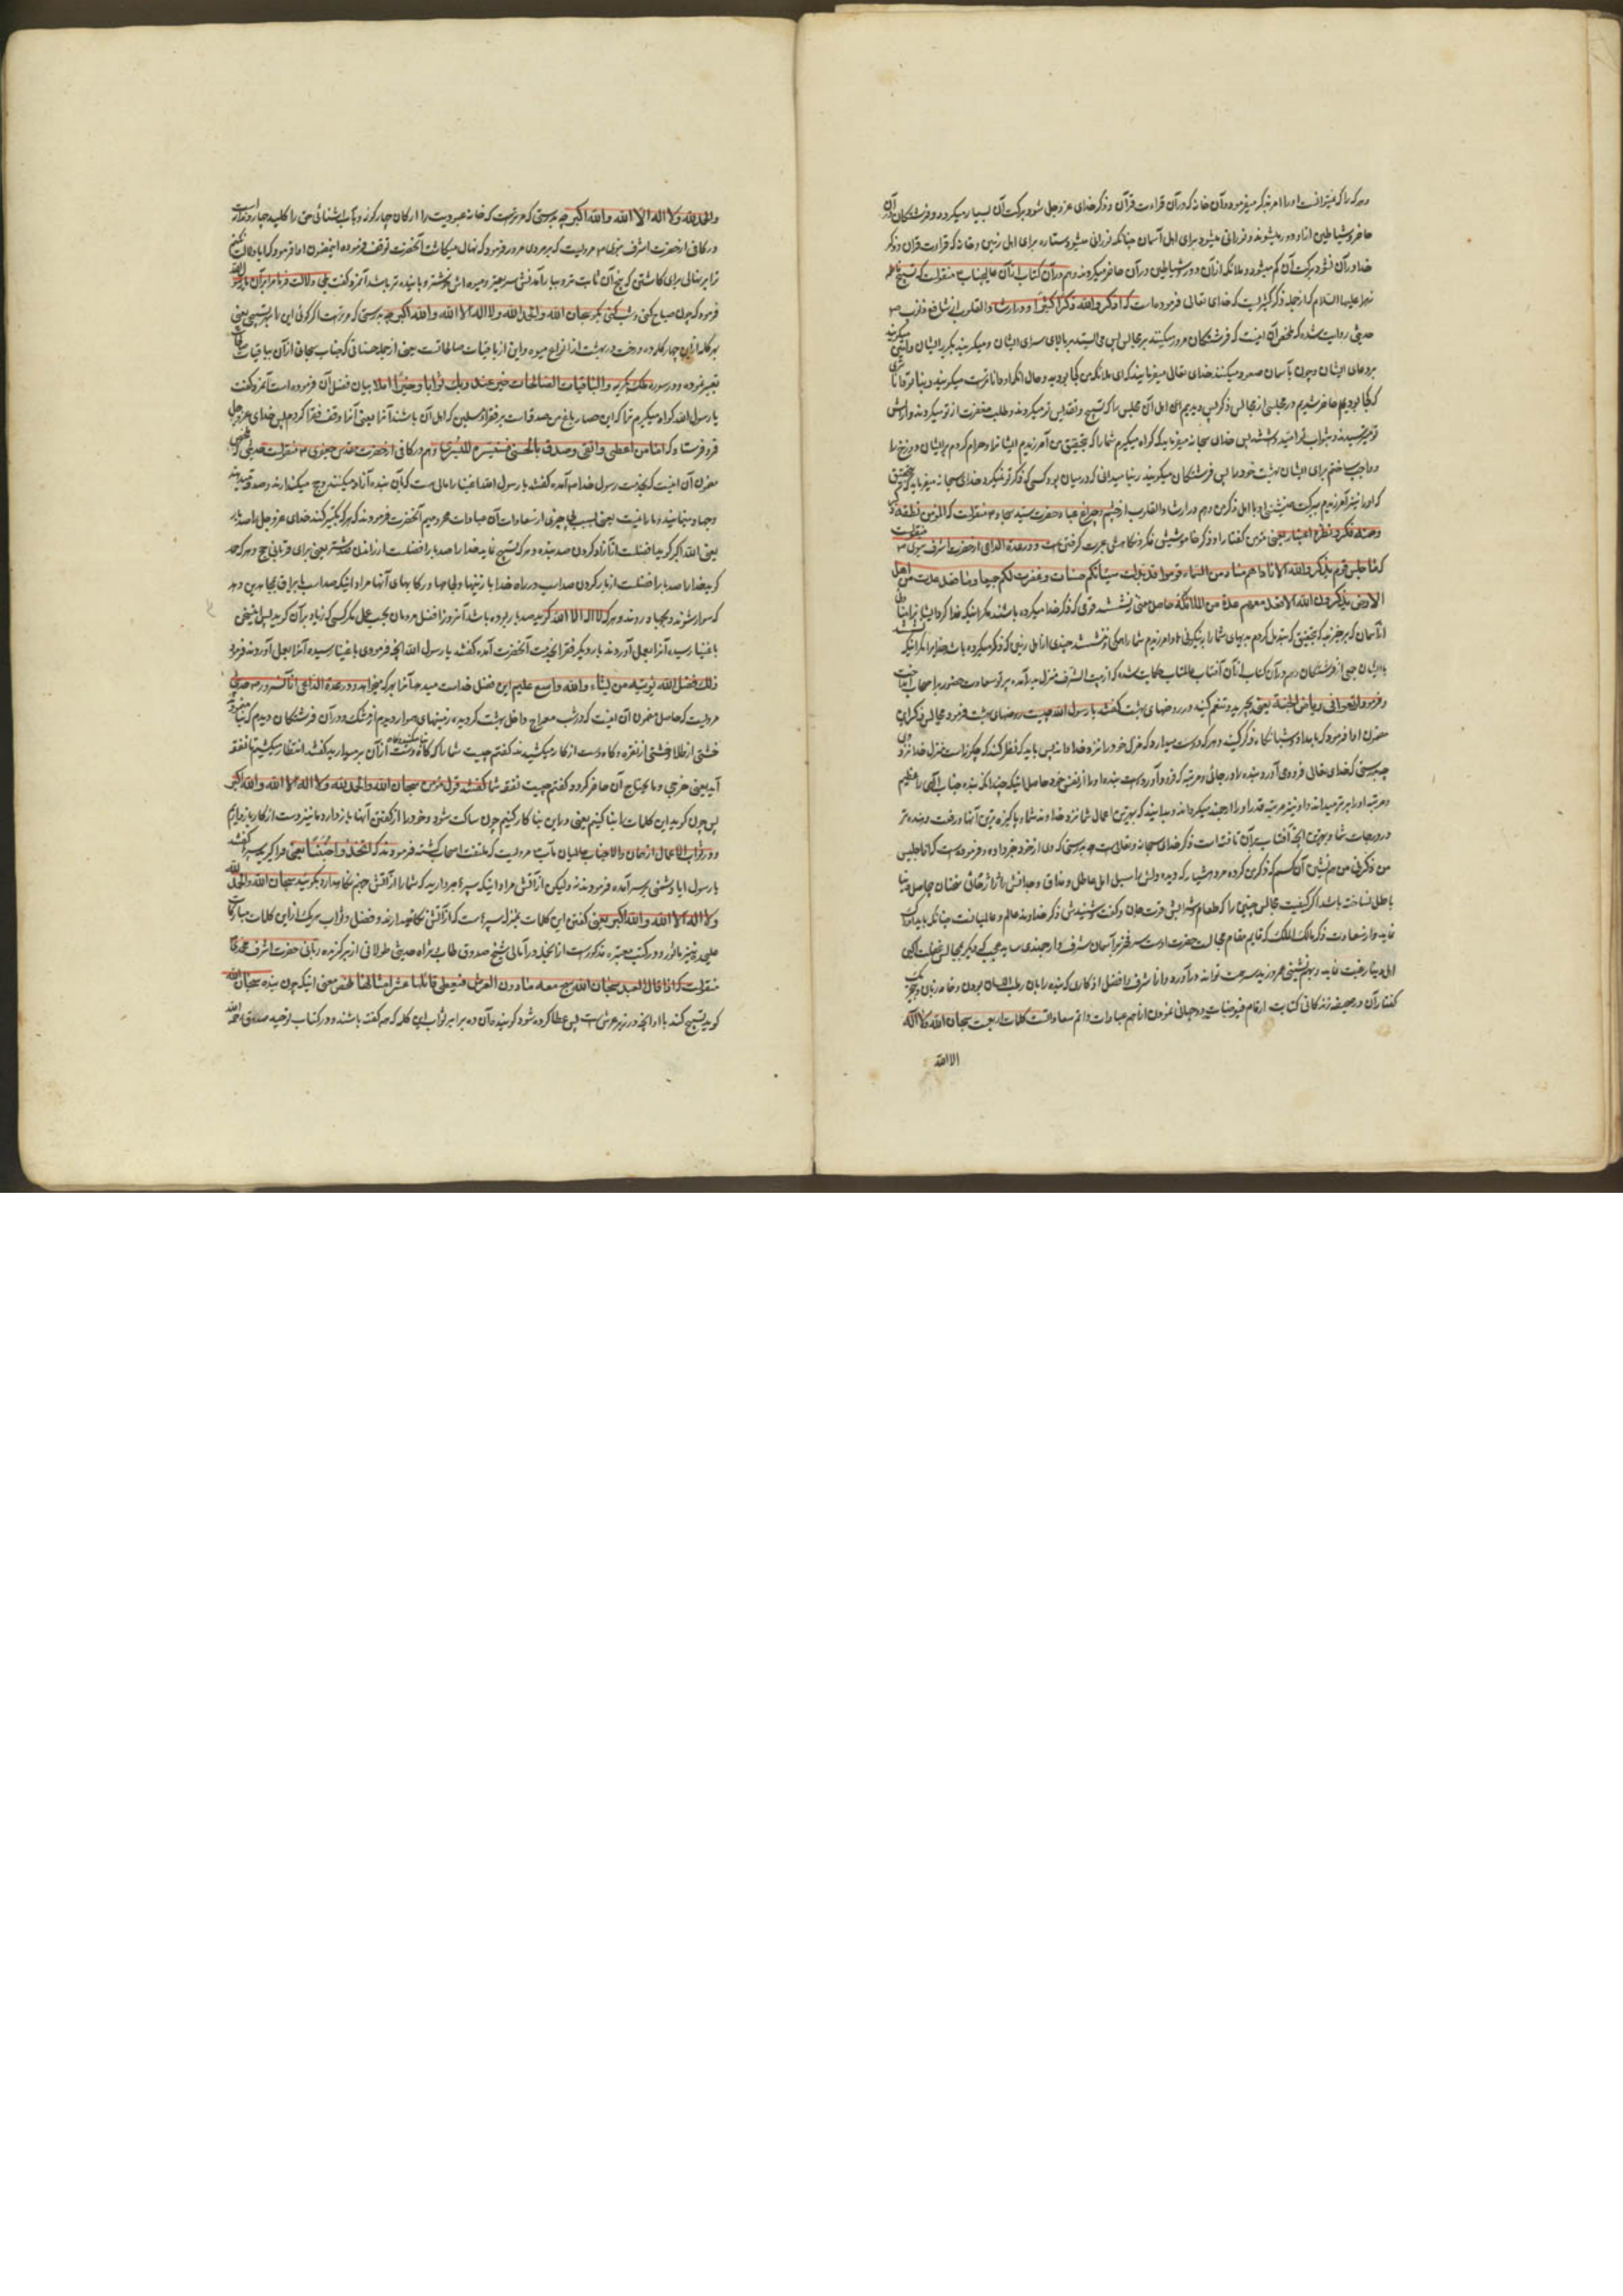 و هر که را که میتوانست او را امر بذکر میفرمود و آن خانه که در آن قراءت قرآن و ذکر خدای عز و جل شود برکت آن بسیار میگردد و فرشتگان در آن
حاضر و شیاطین از او دور میشوند و نورانی میشود برای اهل آسمان چنانکه نورانی میشود ستاره برای اهل زمین و خانه که قراءت قرآن و ذکر
خدا در آن نشود برکت آن کم میشود و ملائکه از آن دور و شیاطین در آن حاضر میگردند و هم در آن کتاب از آن عالیجناب منقولست که تسبیح فاطمه
زهرا علیها السلام از جمله ذکر کثیریست که خدای تعالی فرموده است که اذکروا الله ذکرا کثیرا و در ارشاد القلوب
حدیثی روایت شده که ملخص آن اینست که فرشتگان مرور میکنند بر مجالس پس می ایستند بر بالای سرای ایشان و میگریند بگریه ایشان و آمین میگویند
بر دعای ایشان و چون بآسمان صعود میکنند خدای تعالی میفرمایند که ای ملائکه من کجا بودید و حال آنکه او داناتر است میگویند ربنا تو داناتری
که کجا بودیم حاضر شدیم در مجلسی از مجالس ذکر پس دیدیم اهل آن مجلس را که تسبیح و تقدیس تو میکردند و طلب مغفرت از تو میکردند و از آتش
تو میترسیدند پس خدای سبحانه میفرماید که گواه میگیرم شما را که بتحقیق من آمرزیدم ایشانرا و حرام کردم بر ایشان دوزخ را
و واجب ساختم برای ایشان بهشت خود را پس فرشتگان میگویند ربنا میدانی که در میان بود کسی که ذکر تو نمیکرد خدای سبحانه میفرماید که بتحقیق
که او را نیز آمرزیدم ببرکت همنشینی او با اهل ذکر من و هم در ارشاد القلوب از حضرت سید سجاد منقولست که المؤمن نطقه ذکر
وصمته فکر ونظره اعتبار یعنی مؤمن گفتار او ذکر خاموشیش فکر و نگاهش عبرت گرفتن است و در عدة الداعی از حضرت اشرف نبوی منقولست
که ما جلس قوم یذکرون الله الا ناداهم مناد من السماء قوموا قد بدلت سیئاتکم حسنات وغفرت لکم جمیعا وما قعد عدة من اهل
الارض یذکرون الله الا قعد معهم عدة من الملائکة حاصل معنی ننشستند قومی که ذکر خدا میکرده باشند مگر اینکه ندا کرد ایشانرا منادی
از آسمان که برخیزید که بتحقیق که مبدل کردم بدیهای شما را بنیکوئی ها و آمرزیدم شما را همگی و ننشستند چندی از اهل زمین که ذکر میکرده باشند خدا را مگر اینکه
با ایشان جمعی از فرشتگان و هم در آن کتاب از آن آفتاب عالمتاب حکایت شده که از بیت الشرف منزل بدر آمده پرتو سعادت حضور با صحاب انداخت
و فرمود ارتعوا فی ریاض الجنة یعنی بچرید و تنعم کنید در روضهای بهشت گفتند یا رسول الله چیست روضهای بهشت فرمود مجالس ذکر این
مضمون ادا فرمود که بامداد و شبانگاه ذکر کنید و هر که دوست میدارد که منزلت خود را نزد خدا داند پس باید که نظر کند که چگونه است منزلت خدا نزد وی
چه بدرستی که خدای تعالی فرود می آورد بنده را در جائی و مرتبه که فرود آورده است بنده او را از نفس خود حاصل اینکه چندانکه بنده جناب الهی را عظیم
و مرتبه او را برتر میداند او نیز مرتبه قدر او را ارجمند میگرداند و بدانید که بهترین اعمال شما نزد خداوند شما و پاکیزه ترین آنها و رفعت دهنده تر
در درجات شما و بهترین آنچه آفتاب بر آن تافته است ذکر خدای سبحانه و تعالی است چه بدرستی که وی از خود خبر داده و فرموده است که انا جلیس
من ذکرنی من همنشین آن کسم که ذکر من کرده
باطل نساخته باشد اگر کیفیت مجالس
نماید و از سعادت ذکر مالک الملک که قایم مقام مجالست حضرت اوست سر فخر بر آسمان شرف و ارجمندی ساید
ابدی رغبت نماید
گفتار آن در صحیفه زندگانی کتابت ارقام فیوضات دو جهانی نمودن از اهم عبادات و اتم سعاداتست کلمات اربعست سبحان الله ولا اله
الا الله
والحمد لله ولا اله الا الله والله اکبر چه بدرستی که مرویست که خانه عبودیت را ارکان چهارگونه
در کافی از حضرت اشرف نبوی مرویست که بر مردی مرور فرمود که نهال میکاشت آنحضرت توقف فرموده این مضمون ادا فرمود که آیا دلالت نکنم
ترا بر نهالی برای کاشتن که بیخ آن ثابت تر و ببار آمدنش سریعتر و میوه اش خوشتر و پاینده تر باشد آنمرد گفت بلی دلالت فرما مرا بر آن یا رسول الله
فرمود که چون صباح کنی و شب کنی بگو سبحان الله والحمد لله ولا اله الا الله والله اکبر چه بدرستی که مر تراست اگر گوئی این را بهر تسبیحی یعنی
بهر کلمه ازین چهار کلمه ده درخت در بهشت از انواع میوه و این از باقیات صالحاتست یعنی از جمله حسناتی که جناب سبحانی از آن بباقیات صالحات
تعبیر نموده و در سوره کریمه والباقیات الصالحات خیر عند ربک ثوابا وخیر املا بیان فضل آن فرموده است آنمرد گفت
یا رسول الله گواه میگیرم ترا که این حصار باغ من صدقه است بر فقراء مسلمین که اهل آن باشند آنرا یعنی آنرا وقف فقرا کردم پس خدای عز و جل
فرو فرستاد که اما من اعطی واتقی وصدق بالحسنی فسنیسره للیسری و هم در کافی از حضرت مقدس جعفری منقولست حدیثی که مضمون
مضمون آن اینست که بخدمت رسول خدا آمده گفتند یا رسول الله اغنیا را مالی هست که بآن بنده آزاد میکنند و حج میگذارند و صدقه میدهند
و جهاد مینمایند و ما را نیست یعنی بسبب بی چیزی از سعادات آن عبادات محرومیم آنحضرت فرمودند که هر که تکبیر کند خدای عز و جل را صد بار
یعنی الله اکبر گوید افضلست از آزاد کردن صد بنده و هر که تسبیح نماید خدا را صد بار افضلست از راندن صد شتر یعنی برای قربانی حج و هر که حمد
گوید خدا را صد بار افضلست از بار کردن صد اسب در راه خدا با زینها و لجامها و رکابهای آنها مراد اینکه صد اسب با یراق بمجاهدین دهد
که سوار شوند و بجهاد روند و هر که لا اله الا الله گوید صد بار بوده باشد آنروز افضل مردمان بحسب عمل مگر کسی که زیاده بر آن گوید پس این سخن
باغنیا رسیده آنرا بعمل آوردند بار دیگر فقرا بخدمت آنحضرت آمده گفتند یا رسول الله آنچه فرمودی باغنیا رسیده آنرا بعمل آوردند فرمود
ذلک فضل الله یؤتیه من یشاء والله واسع علیم این فضل خداست میدهد آنرا بهر که میخواهد و در عدة الداعی از آنسرور حدیثی
مرویست که حاصل مضمون آن اینست که در شب معراج داخل بهشت گردیده زمینهای هموار دیدم از مشک و در آن فرشتگان دیدم که بنا میکردند
خشتی از طلا و خشتی از نقره و گاه دست از کار میکشیدند گفتم چیست شما را که گاه بنا میکنید و گاه دست از آن برمیدارید گفتند انتظار میکشیم تا نفقه
آید یعنی خرجی و ما یحتاج آن حاضر گردد گفتم چیست نفقه شما گفتند قول مؤمن سبحان الله والحمد لله ولا اله الا الله والله اکبر
پس چون گوید این کلمات را بنا کنیم یعنی در این بنا کار کنیم چون ساکت شود و خود را از گفتن آنها باز دارد ما نیز دست از کار باز داریم
و در ثواب الاعمال از همان والاجناب عالمیان مآب مرویست که ملتفت اصحاب گشته فرمودند که اتخذوا جننا یعنی فرا گیرید سپرها گفتند
یا رسول آیا دشمنی بر سر آمده فرمودند نه ولیکن از آتش مراد اینکه سپرها بردارید که شما را از آتش جهنم نگاه دارد بگوئید سبحان الله والحمد لله
ولا اله الا الله والله اکبر یعنی گفتن این کلمات بمنزله سپر است که از آتش نگاه میدارند و فضل و ثواب هر یک از این کلمات مبارکات
علی حده نیز مأثور و در کتب معتبره مذکورست از آنجمله در آمالی شیخ صدوق طاب ثراه حدیثی طولانی از برگزیده ربانی حضرت اشرف
منقولست که اذا قال العبد سبحان الله سبح معه ما دون العرش فیعطی قائلها عشر امثالها ملخص معنی اینکه چون بنده سبحان الله
گوید تسبیح کند با او آنچه در زیر عرش است پس عطا کرده شود گوینده آن ده برابر ثواب این کلمه که همه گفته باشند و در کتاب توحید صدوق رحمه الله